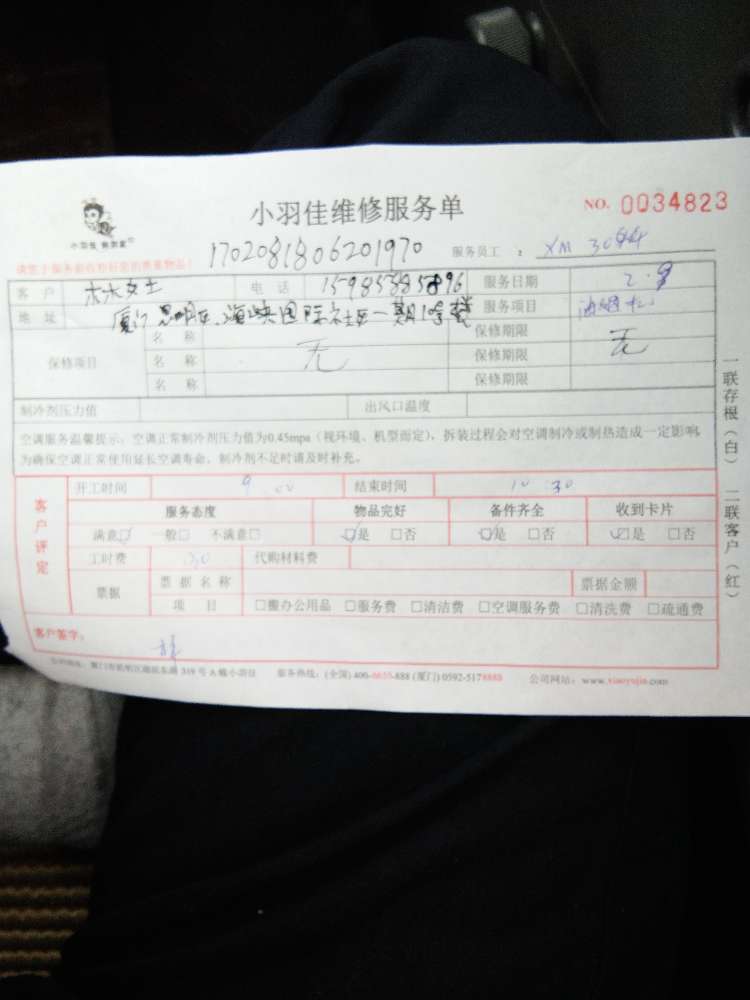 小羽佳维修服务单
NO. 0034823
小羽佳 搬到家
1702081806201970
服务员工：XM 3044
客户 林女士 电话 服务日期 2.9
地址 厦门 思明区 海峡国际社区一期 服务项目 油烟机
保修项目 名称 无 保修期限 无
名称 保修期限
名称 保修期限
制冷剂压力值 出风口温度
空调服务温馨提示：空调正常制冷剂压力值为0.45mpa（视环境、机型而定），拆装过程会对空调制冷或制热造成一定影响，
为确保空调正常使用延长空调寿命，制冷剂不足时请及时补充。
客户评定
开工时间 9:00 结束时间 10:30
服务态度 物品完好 备件齐全 收到卡片
满意☑ 一般□ 不满意□ ☑是 □否 ☑是 □否 ☑是 □否
工时费 30 代购材料费
票据 票据名称 票据金额
项目 □搬办公用品 □服务费 □清洁费 □空调服务费 □清洗费 □疏通费
客户签字：林
服务热线：(全国) 400-6655-888 (厦门) 0592-5178888 公司网站：www.xiaoyujia.com
一联存根（白） 二联客户（红）